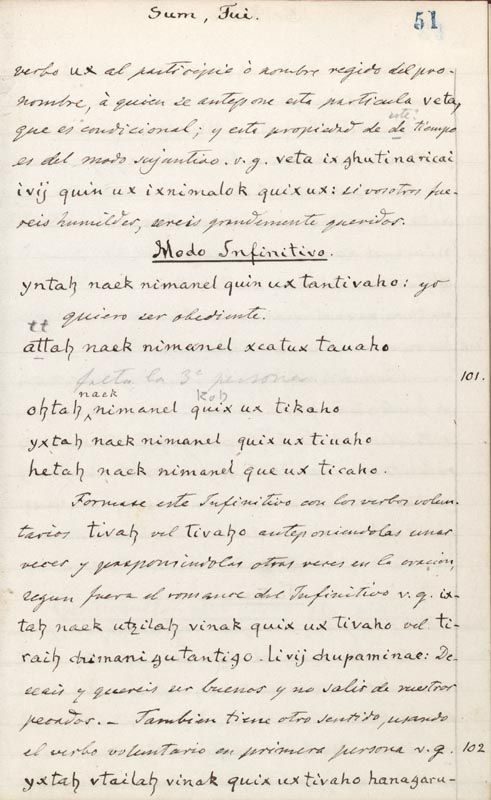 Sum, Fui.
51
verbo ux al participio ò nombre regido del pro-
nombre, à quien se antepone esta particula vetaꜫ
que es condicional; y esta propiedad de de tiempo
este?
es del modo sujuntivo. v. g. veta ix ghutinaricai
ivij quin ux ixnimalok quix ux: si vosotros fue-
reis humildes, sereis grandemente queridos.
Modo Infinitivo.
yntaꜧ naek nimanel quin ux tantivaho: yo
quiero ser obediente.
tt
attaꜧ naek nimanel xcatux tauaho
falta la 3ª persona
101.
naek koꜧ
oꜧtaꜧ nimanel quix ux tikaho
yxtaꜧ naek nimanel quix ux tiuaho
hetaꜧ naek nimanel que ux ticaho.
Formase este Infinitivo con los verbos volun-
tarios tivaꜧ vel tivaꜧo anteponiendolas unas
veces y posponiendolas otras veces en la oracion,
segun fuera el romance del Infinitivo v. g. ix-
taꜧ naek utzilaꜧ vinak quix ux tivaho vel ti-
raiꜧ chimani qutantigo. livij chupaminae: De-
seais y quereis ser buenos y no salir de nuestros
pecados. – Tambien tiene otro sentido, usando
el verbo voluntario en primera persona v. g.
102
yxtaꜧ vtailaꜧ vinak quix ux tivaho hanagaru-